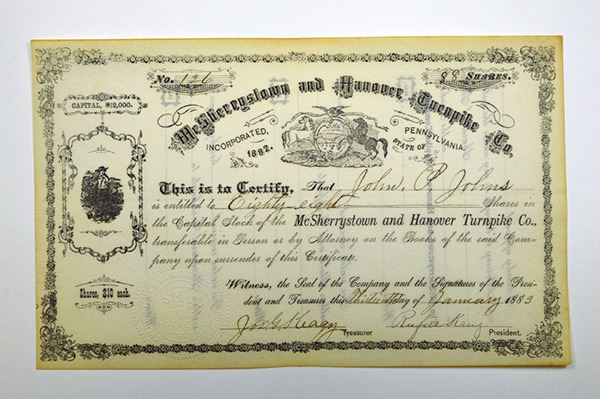 No. 126
88 SHARES.
McSherrystown and Hanover Turnpike Co.
CAPITAL, $12,000.
INCORPORATED, 1882.
STATE OF PENNSYLVANIA
This is to Certify, That John P. Johns
is entitled to Eighty eight Shares in
the Capital Stock of the McSherrystown and Hanover Turnpike Co.,
transferable in Person or by Attorney on the Books of the said Com-
pany upon surrender of this Certificate.
Shares, $10 each.
Witness, the Seal of the Company and the Signatures of the Presi-
dent and Treasurer this day of January 1883
Treasurer
Rufus Krug
President.